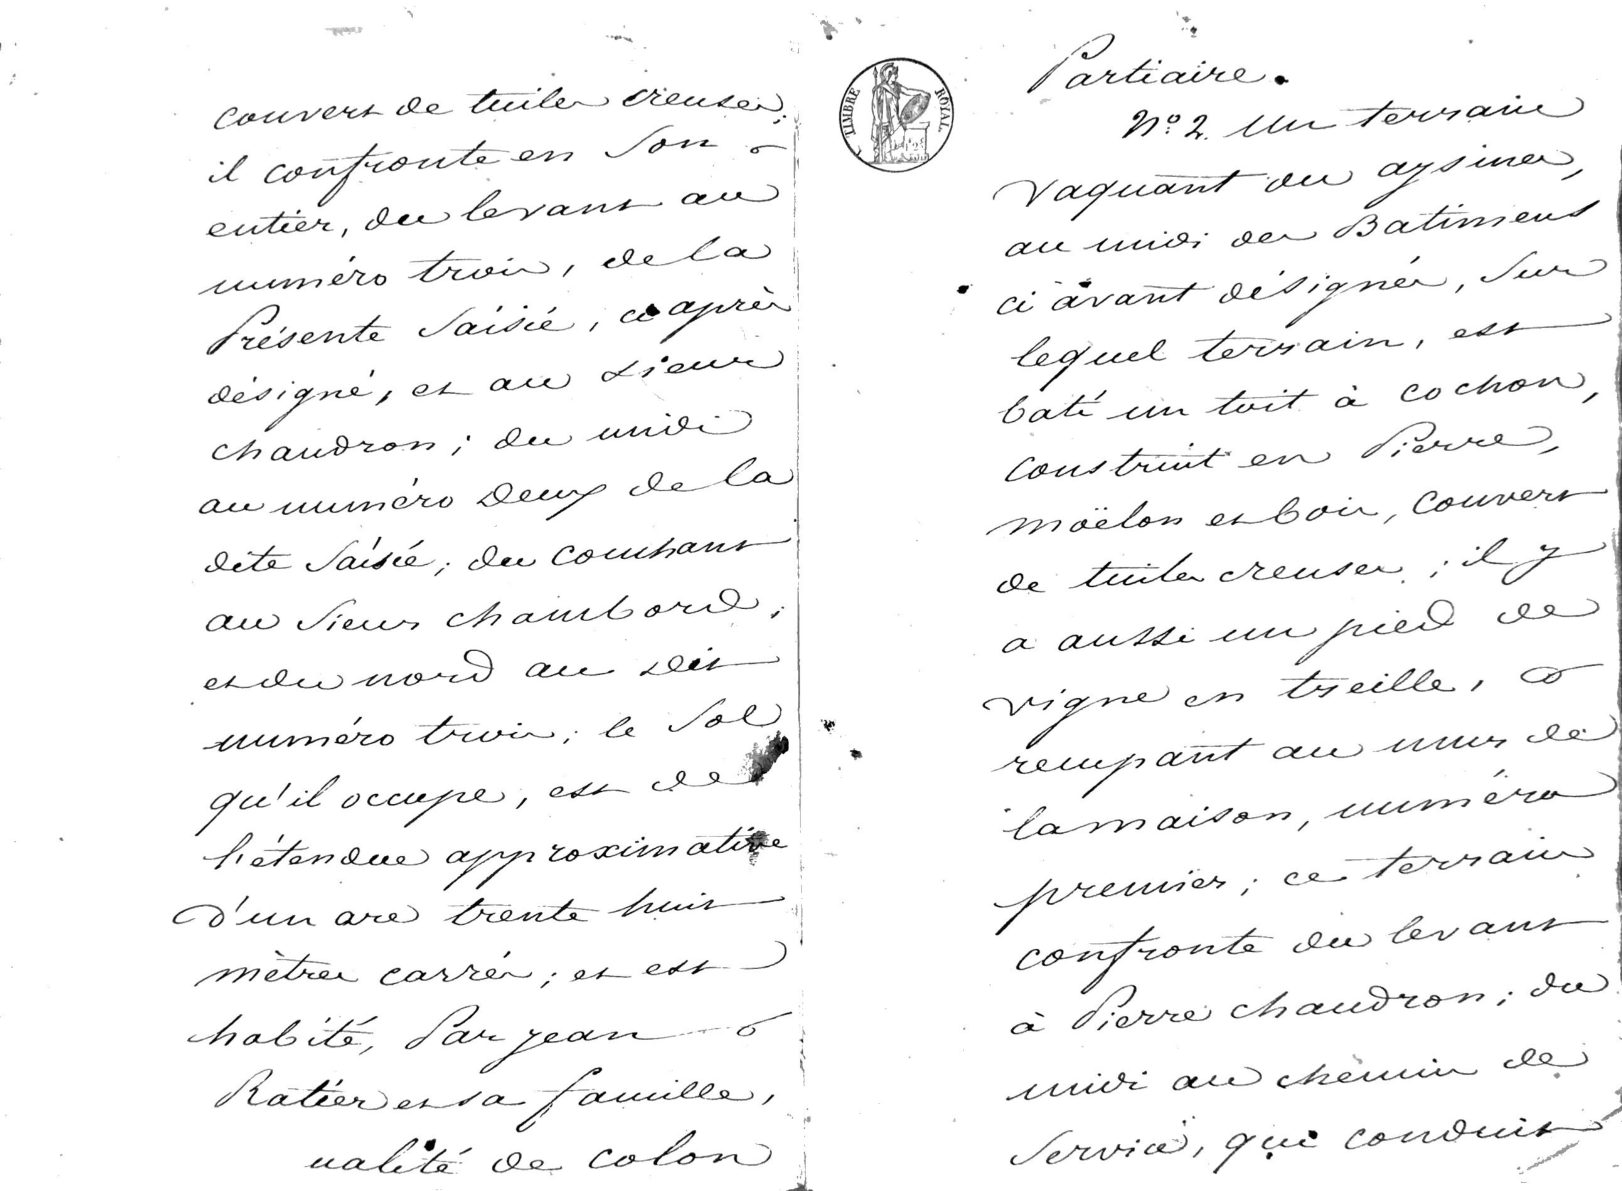 couvert de tuiles creuses;
il confronte en son
entier, du levant au
numéro trois, de la
Présente Saisie, ci après
désigné, et au sieur
chaudron; du midi
au numéro deux de la
dite Saisie; du couchant
au Sieur chambord;
et du nord au dit
numéro trois; le Sol
qu'il occupe, est de
l'étendue approximative
d'un are trente huit
mètres carrés; et est
habité, Par jean
Ratier et sa famille,
ualité de colon
TIMBRE ROYAL
Partiaire.
N.º 2. Un terrain
vaquant ou aysines,
au midi des Batimens
ci avant désignés, Sur
lequel terrain, est
bati un toit à cochon,
construit en Pierre,
moëlon et bois, couvert
de tuiles creuses; il y
a aussi un pied de
vigne en treille,
rempant au mur de
la maison, numéro
premier; ce terrain
confronte du levant
à Pierre chaudron; du
midi au chemin de
Service, qui conduit